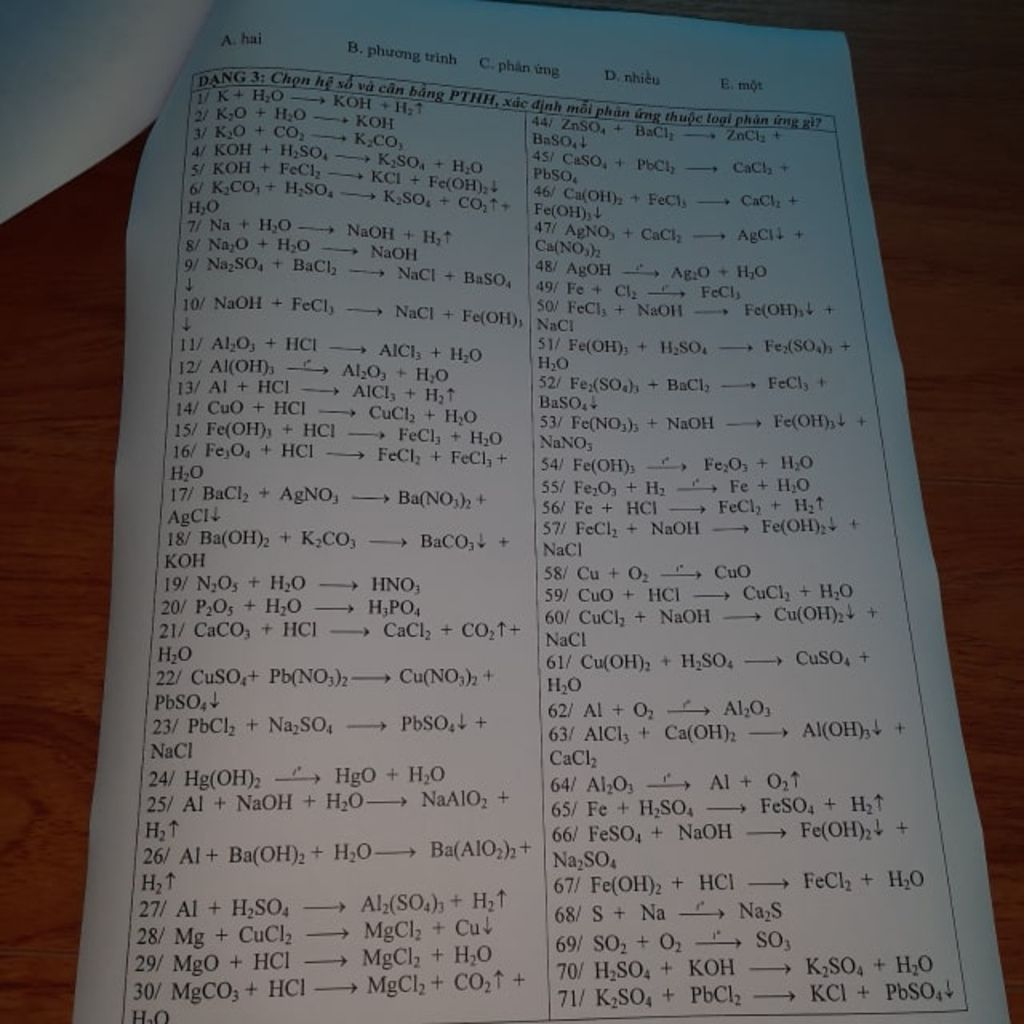 A. hai B. phương trình C. phản ứng D. nhiều E. một
DẠNG 3: Chọn hệ số và cân bằng PTHH, xác định mỗi phản ứng thuộc loại phản ứng gì?
1/ K + H₂O ⟶ KOH + H₂↑
2/ K₂O + H₂O ⟶ KOH
3/ K₂O + CO₂ ⟶ K₂CO₃
4/ KOH + H₂SO₄ ⟶ K₂SO₄ + H₂O
5/ KOH + FeCl₂ ⟶ KCl + Fe(OH)₂↓
6/ K₂CO₃ + H₂SO₄ ⟶ K₂SO₄ + CO₂↑+
H₂O
7/ Na + H₂O ⟶ NaOH + H₂↑
8/ Na₂O + H₂O ⟶ NaOH
9/ Na₂SO₄ + BaCl₂ ⟶ NaCl + BaSO₄
↓
10/ NaOH + FeCl₃ ⟶ NaCl + Fe(OH)₃
↓
11/ Al₂O₃ + HCl ⟶ AlCl₃ + H₂O
12/ Al(OH)₃ —t°→ Al₂O₃ + H₂O
13/ Al + HCl ⟶ AlCl₃ + H₂↑
14/ CuO + HCl ⟶ CuCl₂ + H₂O
15/ Fe(OH)₃ + HCl ⟶ FeCl₃ + H₂O
16/ Fe₃O₄ + HCl ⟶ FeCl₂ + FeCl₃ +
H₂O
17/ BaCl₂ + AgNO₃ ⟶ Ba(NO₃)₂ +
AgCl↓
18/ Ba(OH)₂ + K₂CO₃ ⟶ BaCO₃↓ +
KOH
19/ N₂O₅ + H₂O ⟶ HNO₃
20/ P₂O₅ + H₂O ⟶ H₃PO₄
21/ CaCO₃ + HCl ⟶ CaCl₂ + CO₂↑+
H₂O
22/ CuSO₄+ Pb(NO₃)₂⟶ Cu(NO₃)₂ +
PbSO₄↓
23/ PbCl₂ + Na₂SO₄ ⟶ PbSO₄↓ +
NaCl
24/ Hg(OH)₂ —t°→ HgO + H₂O
25/ Al + NaOH + H₂O⟶ NaAlO₂ +
H₂↑
26/ Al + Ba(OH)₂ + H₂O⟶ Ba(AlO₂)₂+
H₂↑
27/ Al + H₂SO₄ ⟶ Al₂(SO₄)₃ + H₂↑
28/ Mg + CuCl₂ ⟶ MgCl₂ + Cu↓
29/ MgO + HCl ⟶ MgCl₂ + H₂O
30/ MgCO₃ + HCl ⟶ MgCl₂ + CO₂↑ +
H₂O
44/ ZnSO₄ + BaCl₂ ⟶ ZnCl₂ +
BaSO₄↓
45/ CaSO₄ + PbCl₂ ⟶ CaCl₂ +
PbSO₄
46/ Ca(OH)₂ + FeCl₃ ⟶ CaCl₂ +
Fe(OH)₃↓
47/ AgNO₃ + CaCl₂ ⟶ AgCl↓ +
Ca(NO₃)₂
48/ AgOH —t°→ Ag₂O + H₂O
49/ Fe + Cl₂ —t°→ FeCl₃
50/ FeCl₃ + NaOH ⟶ Fe(OH)₃↓ +
NaCl
51/ Fe(OH)₃ + H₂SO₄ ⟶ Fe₂(SO₄)₃ +
H₂O
52/ Fe₂(SO₄)₃ + BaCl₂ ⟶ FeCl₃ +
BaSO₄↓
53/ Fe(NO₃)₃ + NaOH ⟶ Fe(OH)₃↓ +
NaNO₃
54/ Fe(OH)₃ —t°→ Fe₂O₃ + H₂O
55/ Fe₂O₃ + H₂ —t°→ Fe + H₂O
56/ Fe + HCl ⟶ FeCl₂ + H₂↑
57/ FeCl₂ + NaOH ⟶ Fe(OH)₂↓ +
NaCl
58/ Cu + O₂ —t°→ CuO
59/ CuO + HCl ⟶ CuCl₂ + H₂O
60/ CuCl₂ + NaOH ⟶ Cu(OH)₂↓ +
NaCl
61/ Cu(OH)₂ + H₂SO₄ ⟶ CuSO₄ +
H₂O
62/ Al + O₂ —t°→ Al₂O₃
63/ AlCl₃ + Ca(OH)₂ ⟶ Al(OH)₃↓ +
CaCl₂
64/ Al₂O₃ —t°→ Al + O₂↑
65/ Fe + H₂SO₄ ⟶ FeSO₄ + H₂↑
66/ FeSO₄ + NaOH ⟶ Fe(OH)₂↓ +
Na₂SO₄
67/ Fe(OH)₂ + HCl ⟶ FeCl₂ + H₂O
68/ S + Na —t°→ Na₂S
69/ SO₂ + O₂ —t°→ SO₃
70/ H₂SO₄ + KOH ⟶ K₂SO₄ + H₂O
71/ K₂SO₄ + PbCl₂ ⟶ KCl + PbSO₄↓